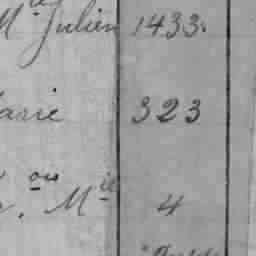 Mie Julien 1433.
arie 323
. ou Mie 4